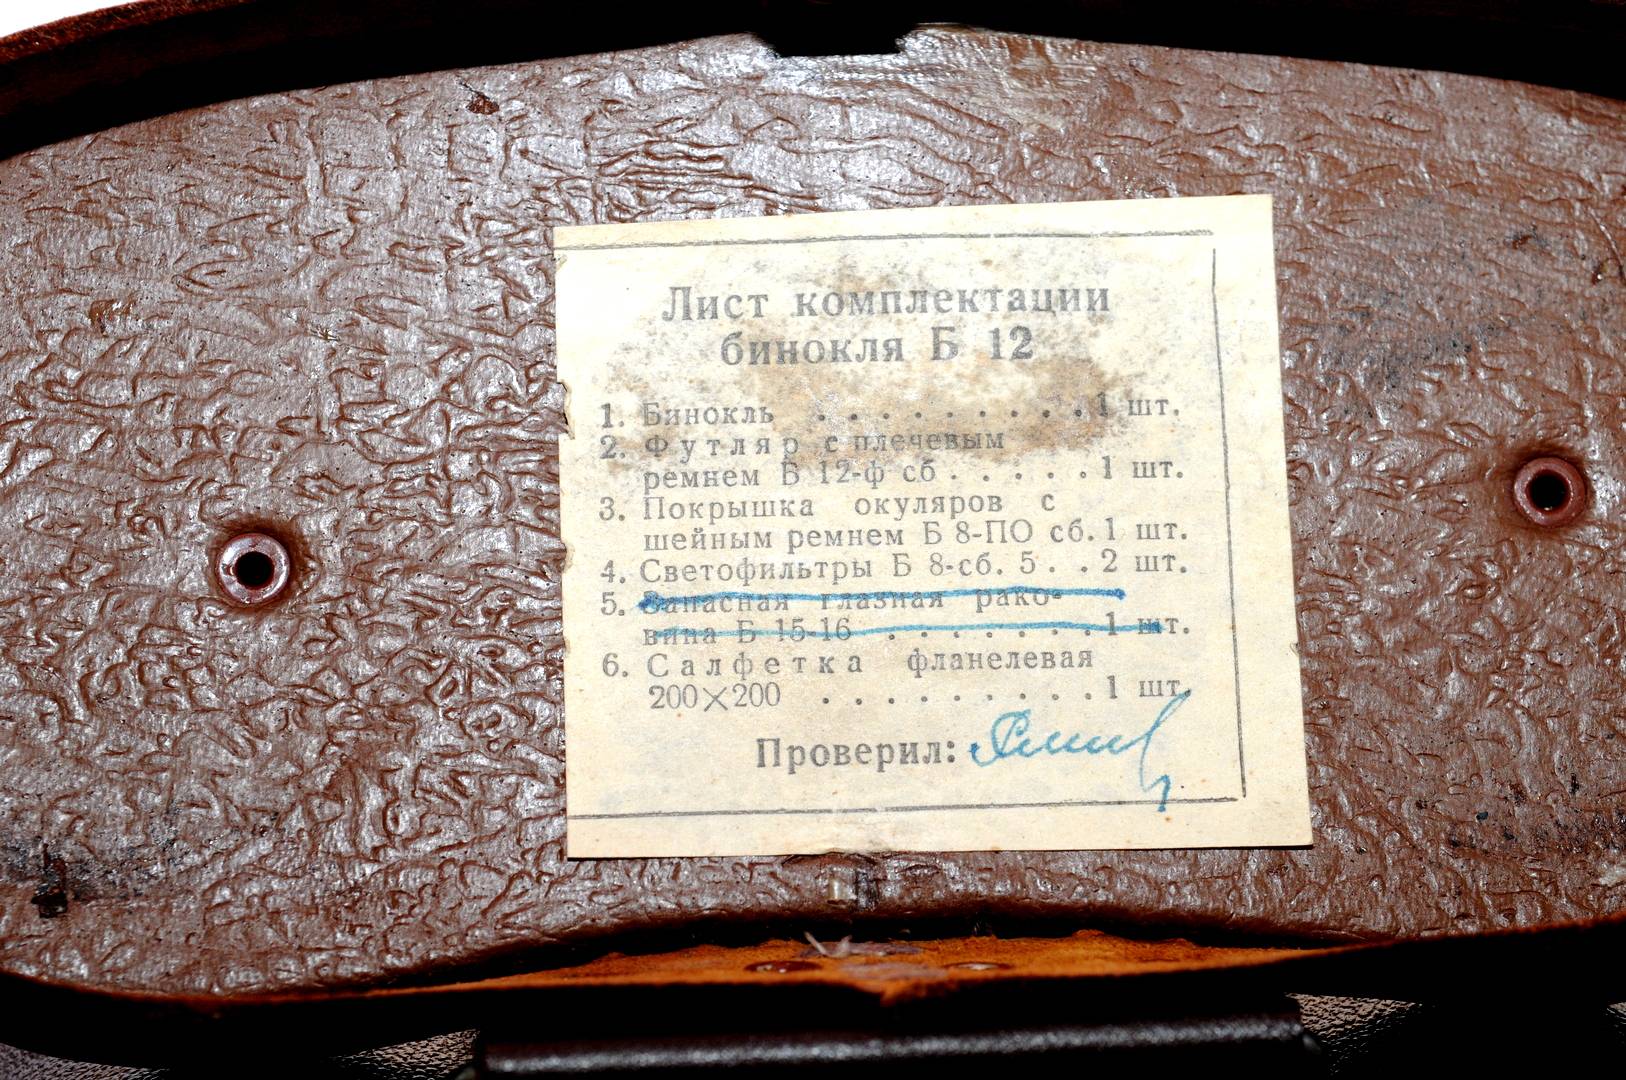 Лист комплектации
бинокля Б 12
1. Бинокль . . . . . . . . . . 1 шт.
2. Футляр с плечевым
ремнем Б 12-ф сб . . . . . 1 шт.
3. Покрышка окуляров с
шейным ремнем Б 8-ПО сб. 1 шт.
4. Светофильтры Б 8-сб. 5 . . 2 шт.
5. Запасная глазная рако-
вина Б 15-16 . . . . . . . 1 шт.
6. Салфетка фланелевая
200×200 . . . . . . . . . 1 шт.
Проверил: